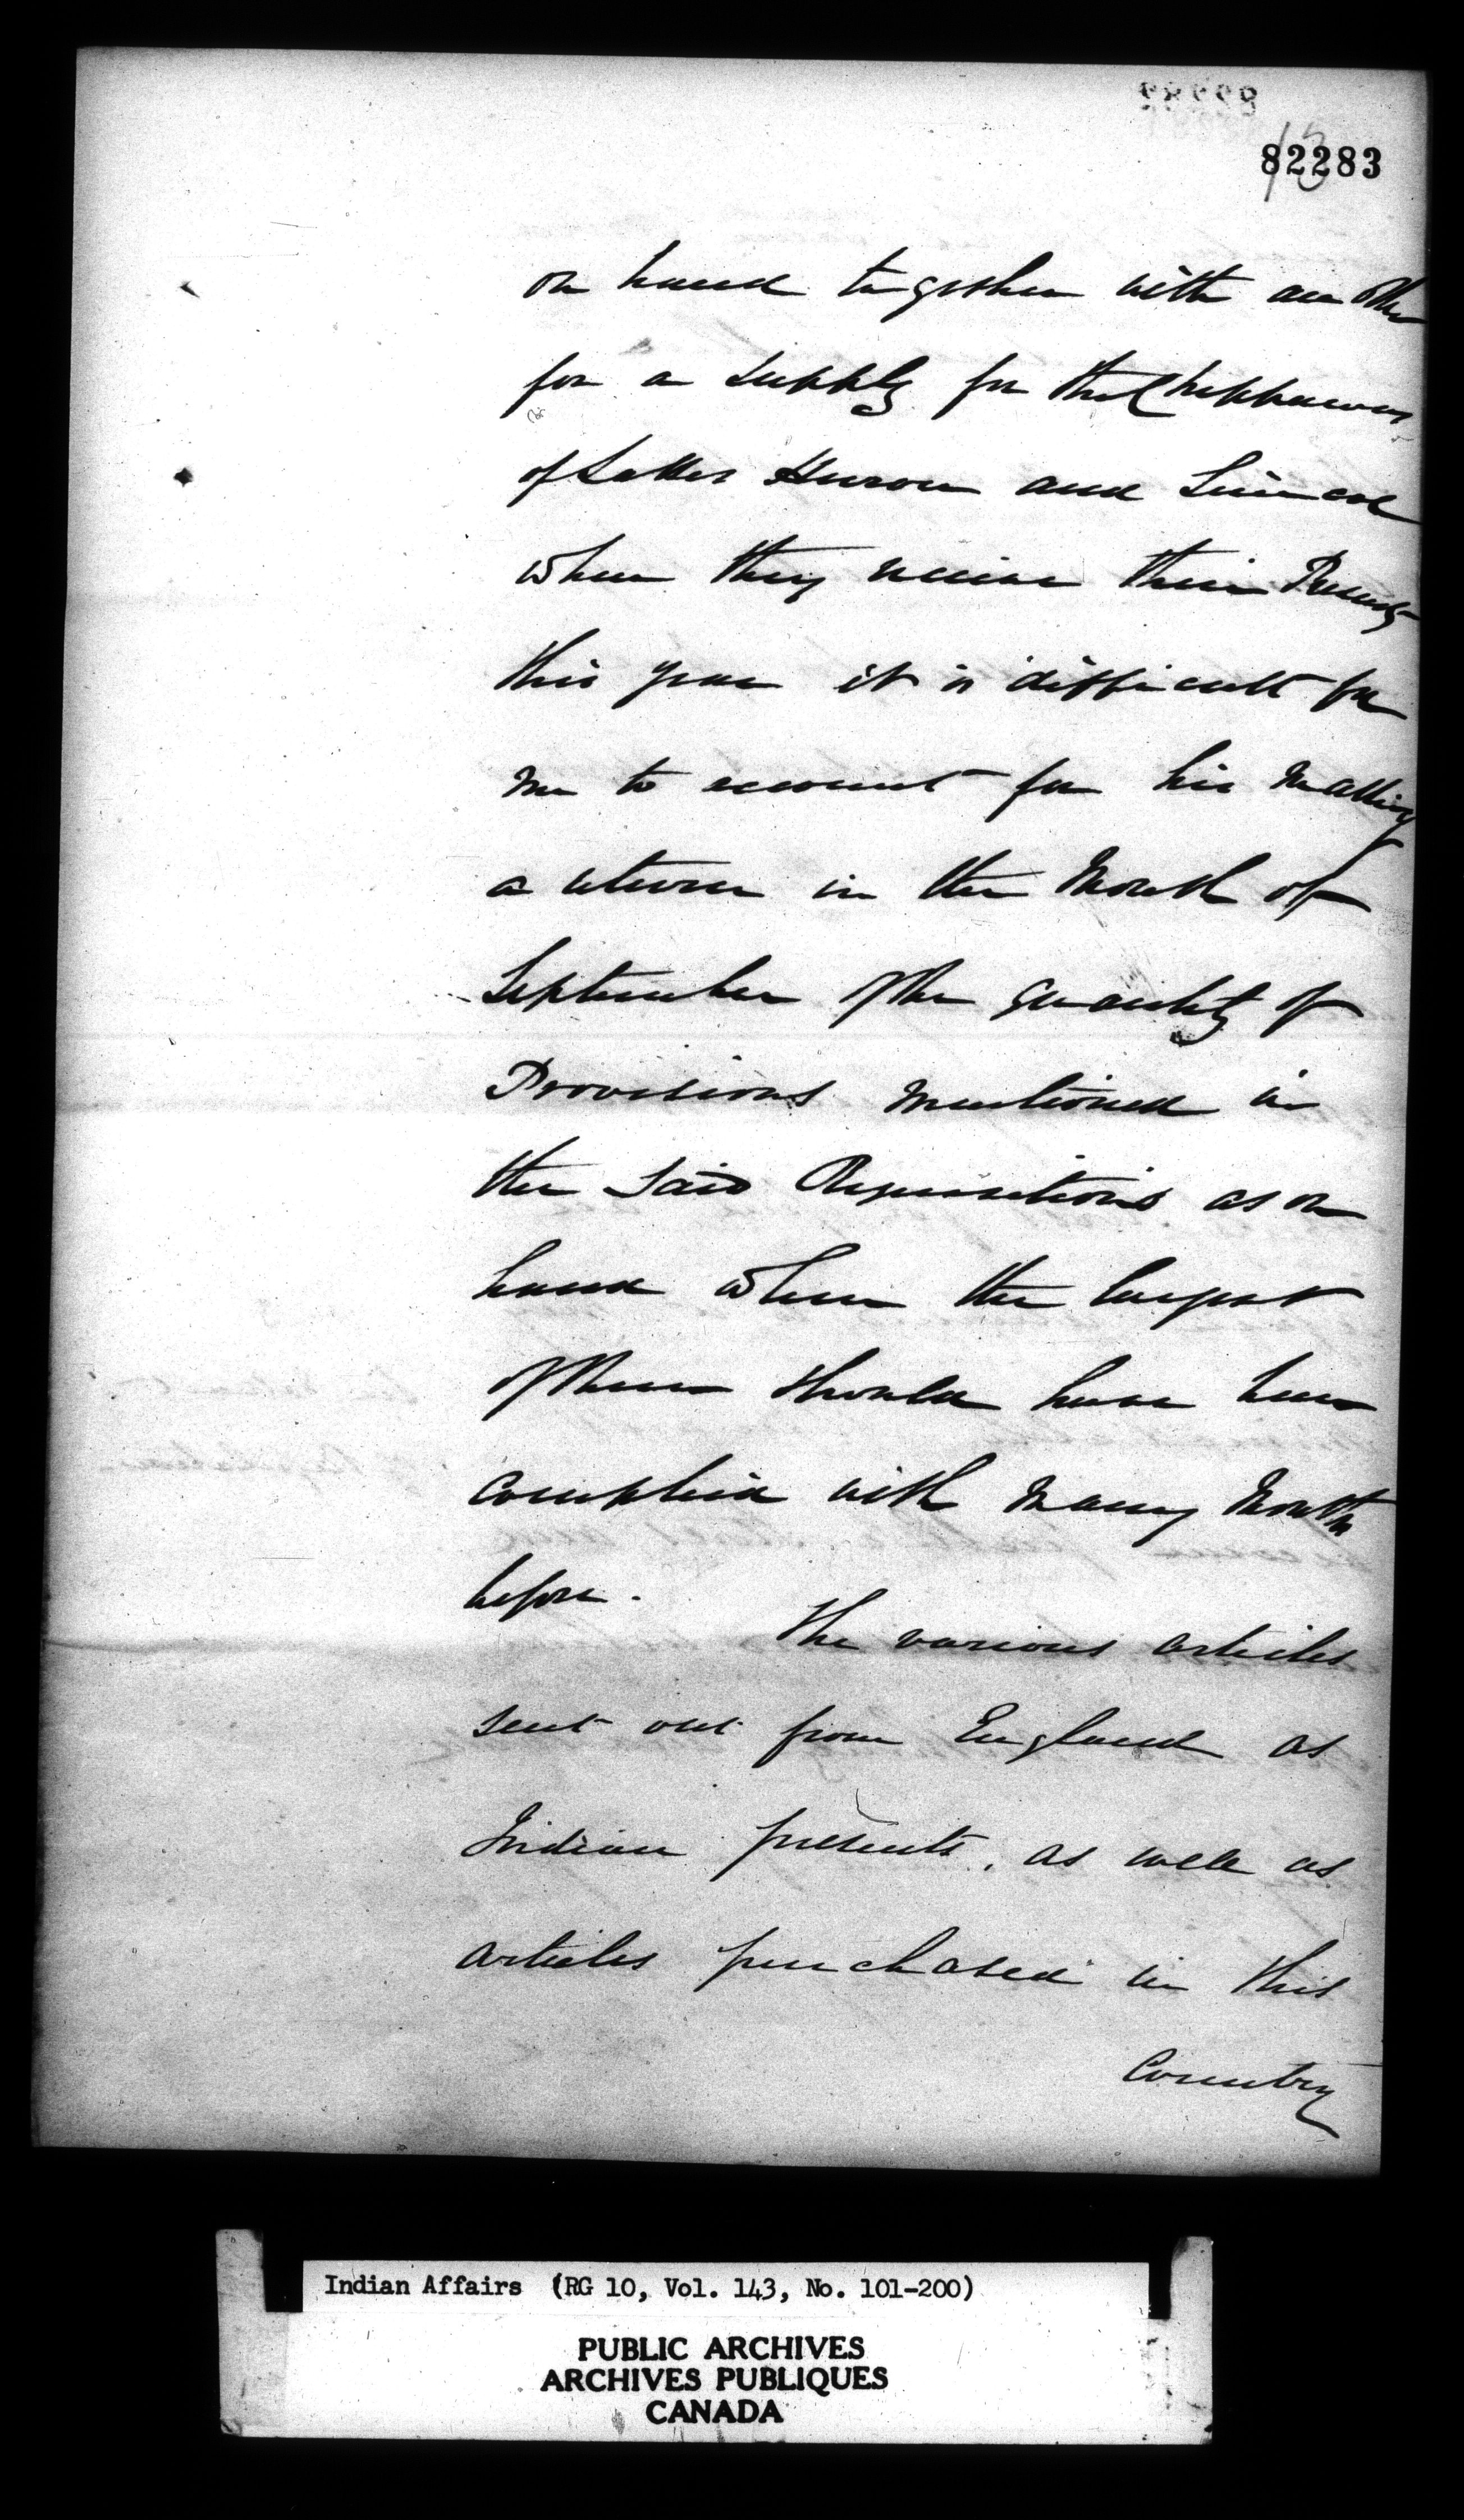 82283
on hand together with another
for a supply for the Chippawas
of Lakes Huron and Simcoe
when they receive their Presents
this year it is difficult for
me to account for his making
a return in the Month of
September of the quantity of
Provisions mentioned in
the said Requisitions as on
hand when the largest
of them should have been
complied with many Months
before.
The various articles
sent out from England as
Indian presents, as well as
articles purchased in this
Country
Indian Affairs (RG 10, Vol. 143, No. 101-200)
PUBLIC ARCHIVES
ARCHIVES PUBLIQUES
CANADA